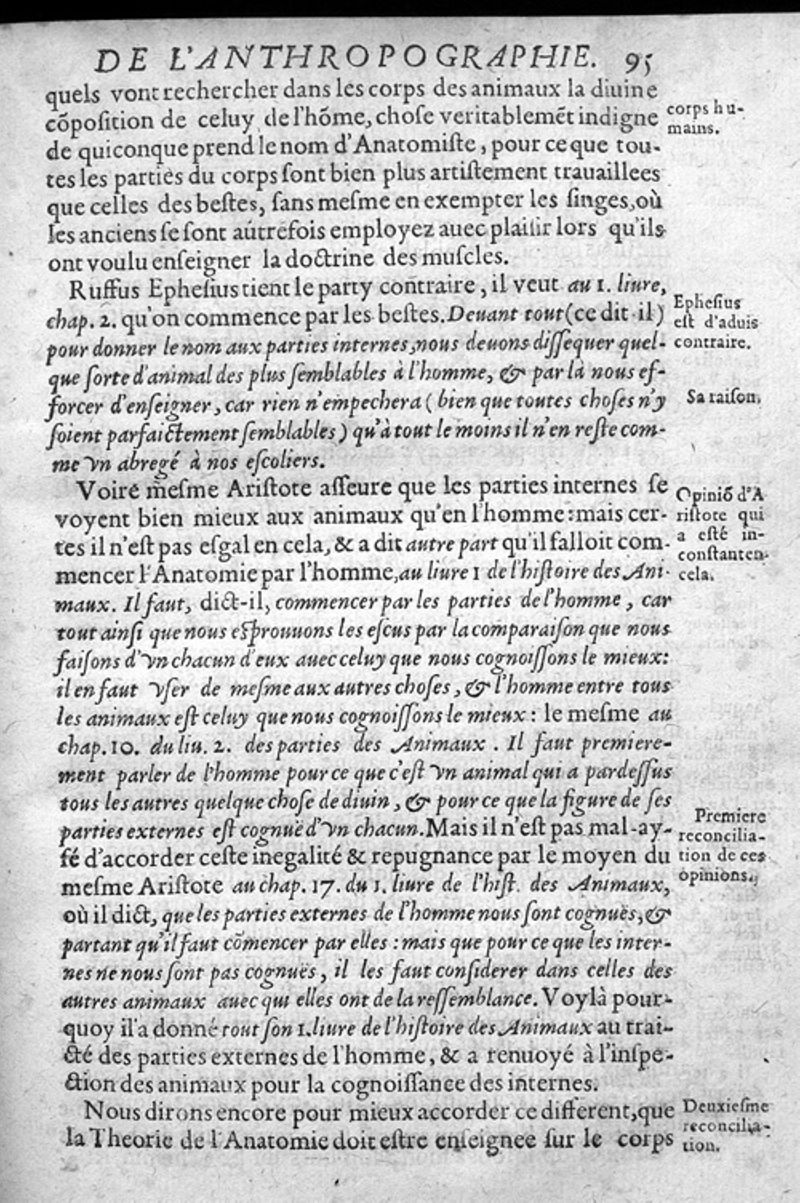 DE L'ANTHROPOGRAPHIE. 95
quels vont rechercher dans les corps des animaux la diuine
cõposition de celuy de l'hõme, chose veritablemẽt indigne
de quiconque prend le nom d'Anatomiste, pour ce que tou-
tes les parties du corps sont bien plus artistement trauaillees
que celles des bestes, sans mesme en exempter les singes, où
les anciens se sont autrefois employez auec plaisir lors qu'ils
ont voulu enseigner la doctrine des muscles.
corps hu-
mains.
Ruffus Ephesius tient le party contraire, il veut au 1. liure,
chap. 2. qu'on commence par les bestes. Deuant tout (ce dit il)
pour donner le nom aux parties internes, nous deuons dissequer quel-
que sorte d'animal des plus semblables à l'homme, & par là nous ef-
forcer d'enseigner, car rien n'empechera (bien que toutes choses n'y
soient parfaictement semblables) qu'à tout le moins il n'en reste com-
me vn abregé à nos escoliers.
Ephesius
est d'aduis
contraire.
Sa raison.
Voire mesme Aristote asseure que les parties internes se
voyent bien mieux aux animaux qu'en l'homme: mais cer-
tes il n'est pas esgal en cela, & a dit autre part qu'il falloit com-
mencer l'Anatomie par l'homme, au liure 1 de l'histoire des Ani-
maux. Il faut, dict-il, commencer par les parties de l'homme, car
tout ainsi que nous esprouuons les escus par la comparaison que nous
faisons d'vn chacun d'eux auec celuy que nous cognoissons le mieux:
il en faut vser de mesme aux autres choses, & l'homme entre tous
les animaux est celuy que nous cognoissons le mieux: le mesme au
chap. 10. du liu. 2. des parties des Animaux. Il faut premiere-
ment parler de l'homme pour ce que c'est vn animal qui a pardessus
tous les autres quelque chose de diuin, & pour ce que la figure de ses
parties externes est cognuë d'vn chacun. Mais il n'est pas mal-ay-
sé d'accorder ceste inegalité & repugnance par le moyen du
mesme Aristote au chap. 17. du 1. liure de l'hist. des Animaux,
où il dict, que les parties externes de l'homme nous sont cognuës, &
partant qu'il faut cõmencer par elles: mais que pour ce que les inter-
nes ne nous sont pas cognuës, il les faut considerer dans celles des
autres animaux auec qui elles ont de la ressemblance. Voylà pour-
quoy il a donné tout son 1. liure de l'histoire des Animaux au trai-
cté des parties externes de l'homme, & a renuoyé à l'inspe-
ction des animaux pour la cognoissance des internes.
Opiniõ d'A
ristote qui
a esté in-
constant en
cela.
Premiere
reconcilia-
tion de ces
opinions.
Nous dirons encore pour mieux accorder ce different, que
la Theorie de l'Anatomie doit estre enseignee sur le corps
Deuxiesme
reconcilia-
tion.